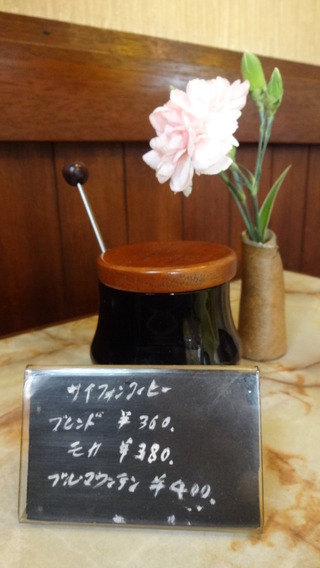 サイフォンコーヒー
ブレンド ¥360.
モカ ¥380.
ブルーマウンテン ¥400.